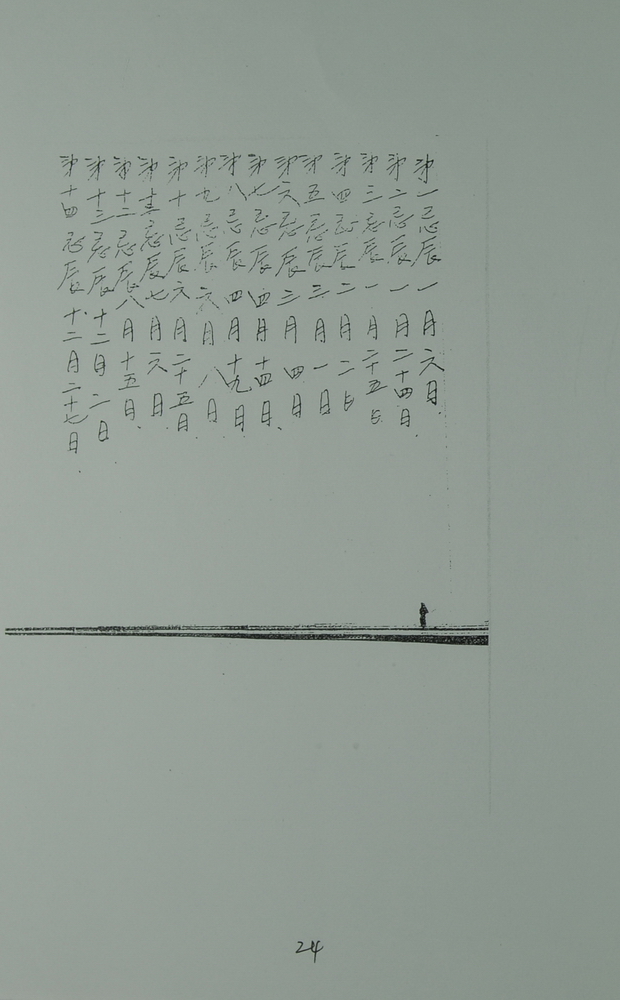 第一忌辰一月六日
第二忌辰一月二十四日
第三忌辰一月二十五日
第四忌辰二月二日
第五忌辰三月一日
第六忌辰三月四日
第七忌辰四月十四日
第八忌辰四月十九日
第九忌辰六月八日
第十忌辰六月二十五日
第十一忌辰七月六日
第十二忌辰八月十五日
第十三忌辰十二月二日
第十四忌辰十二月二十七日
24